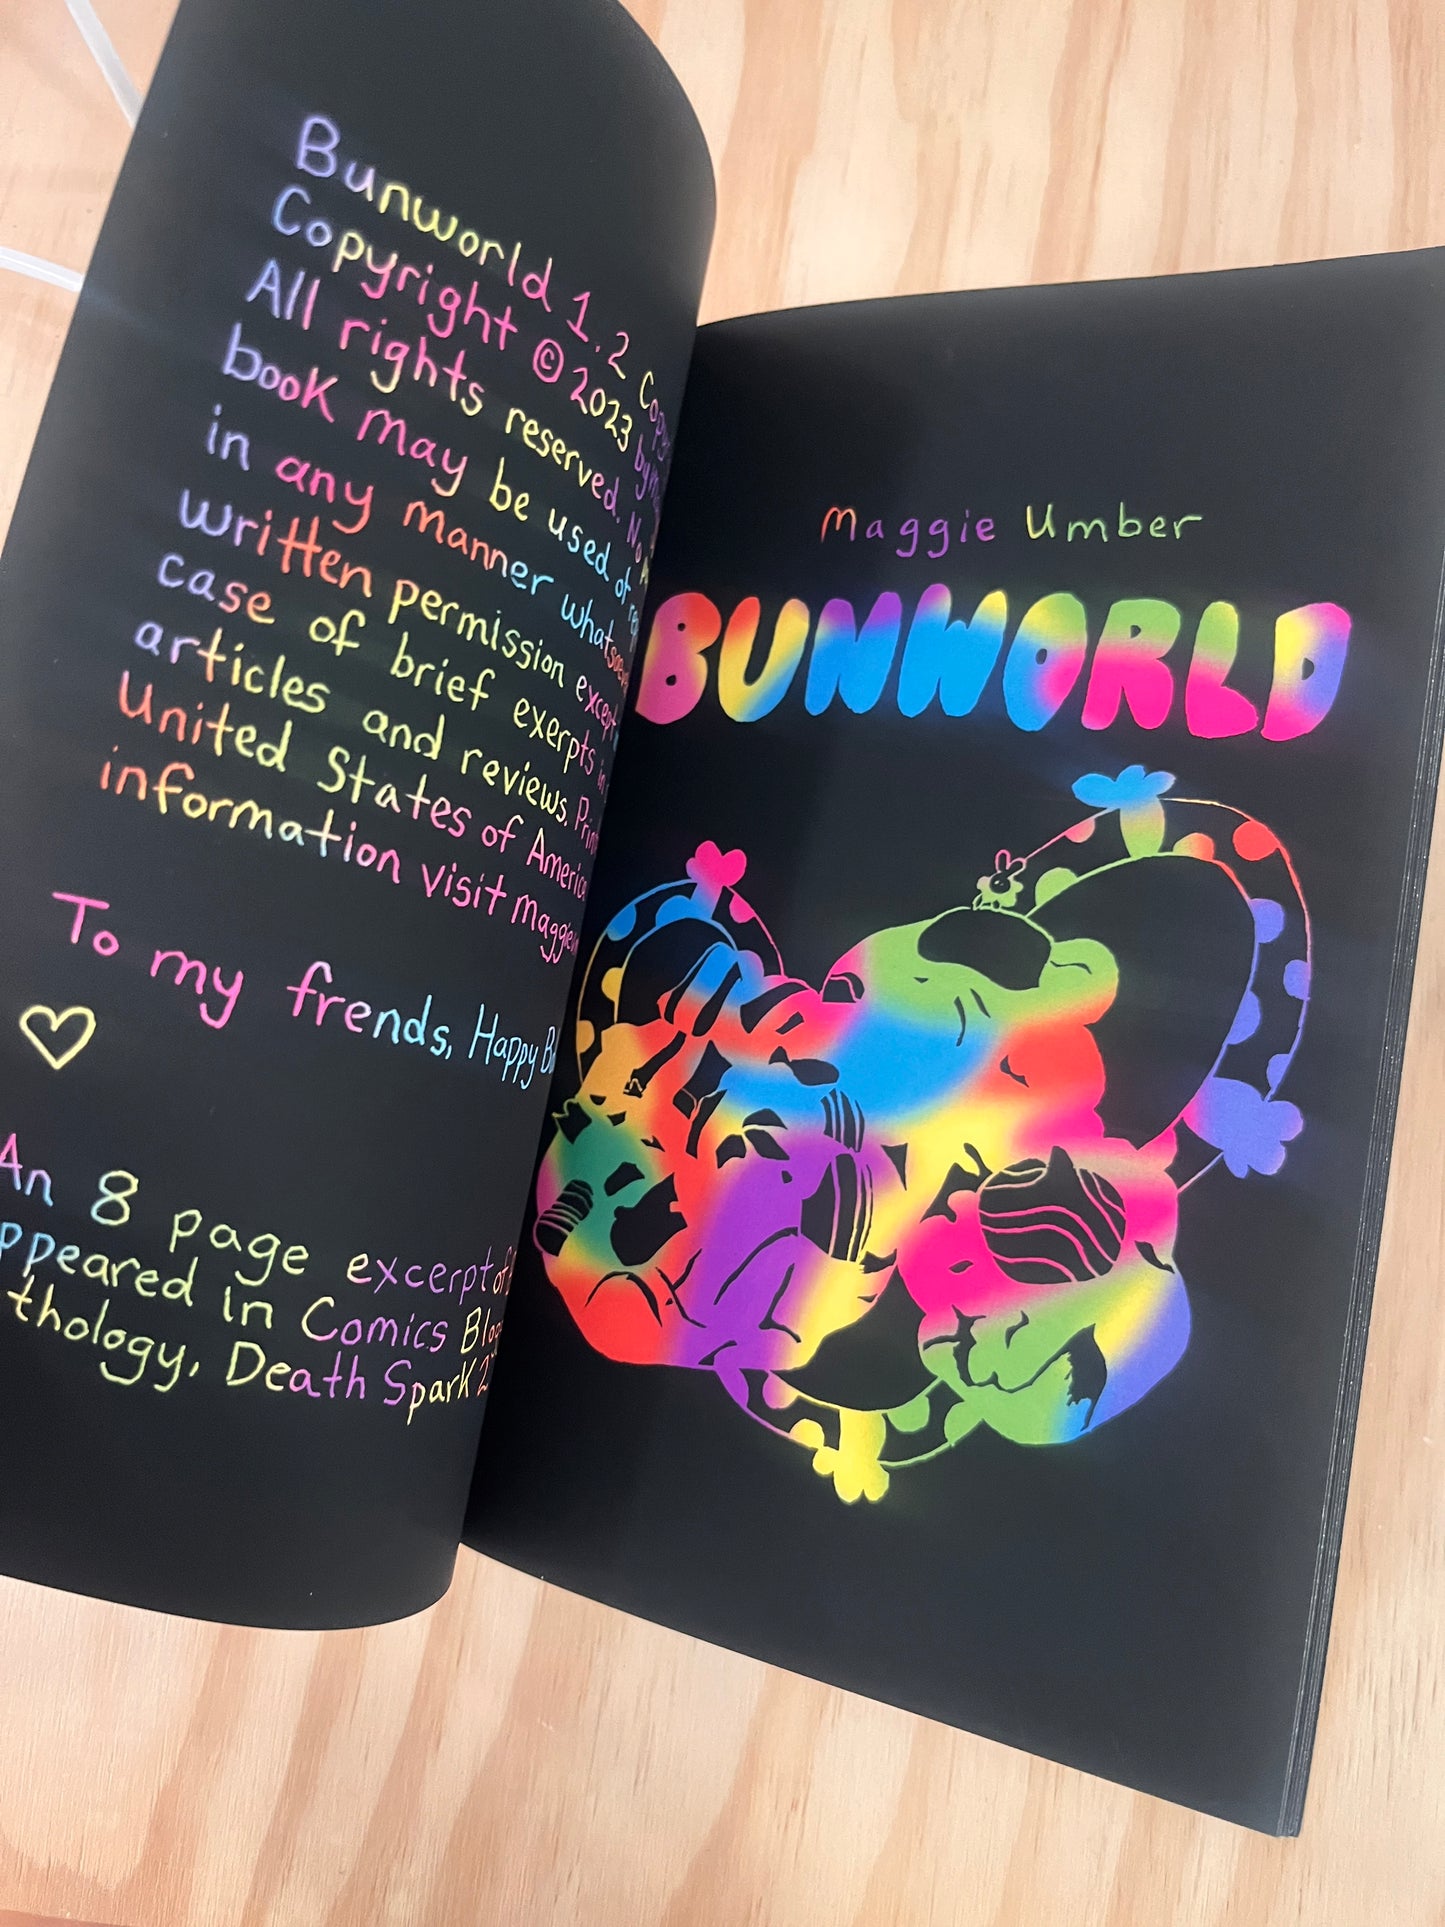 Bunworld 1.2
Copyright © 2023 by
All rights reserved. No
book may be used or
in any manner whatsoever
written permission except
case of brief exerpts in
articles and reviews.
United States of America
information visit
To my frends, Happy
An 8 page excerpt of
in Comics
Death Spark
Maggie Umber
BUNWORLD